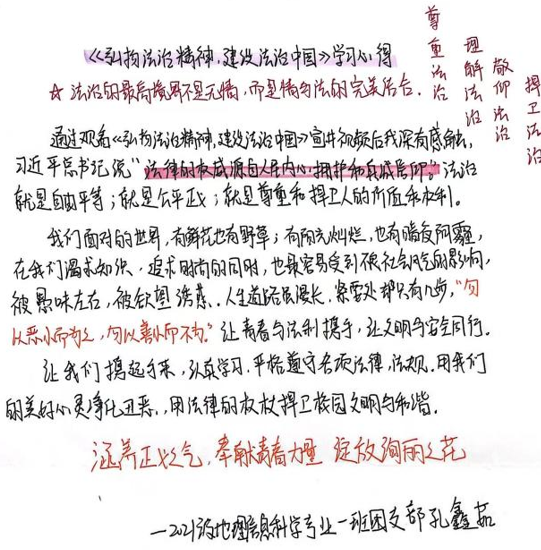 《弘扬法治精神,建设法治中国》学习心得
☆ 法治的最高境界不是无情,而是情与法的完美结合.
尊重法治
理解法治
敬仰法治
捍卫法治
通过观看《弘扬法治精神,建设法治中国》宣传视频后我深有感触,
习近平总书记说"法律的权威源自人民内心拥护和真诚信仰。"法治
就是自由平等;就是公平正义;就是尊重和捍卫人的价值和权利.
我们面对的世界,有鲜花也有野草;有阳光灿烂,也有暗夜阴霾,
在我们渴求知识、追求时尚的同时,也最容易受到很社会风气的影响,
被愚昧左右,被欲望诱惑.人生道路虽漫长,紧要处却只有几步,"勿
以恶小而为之,勿以善小而不为."让青春与法利携手,让文明与安全同行.
让我们携起手来,认真学习.严格遵守各项法律,法规.用我们
的美好心灵净化丑恶,用法律的权杖捍卫校园文明与和谐.
涵养正义之气,奉献青春力量 绽放绚丽之花
—2021级地理信息科学专业一班团支部孔鑫茹